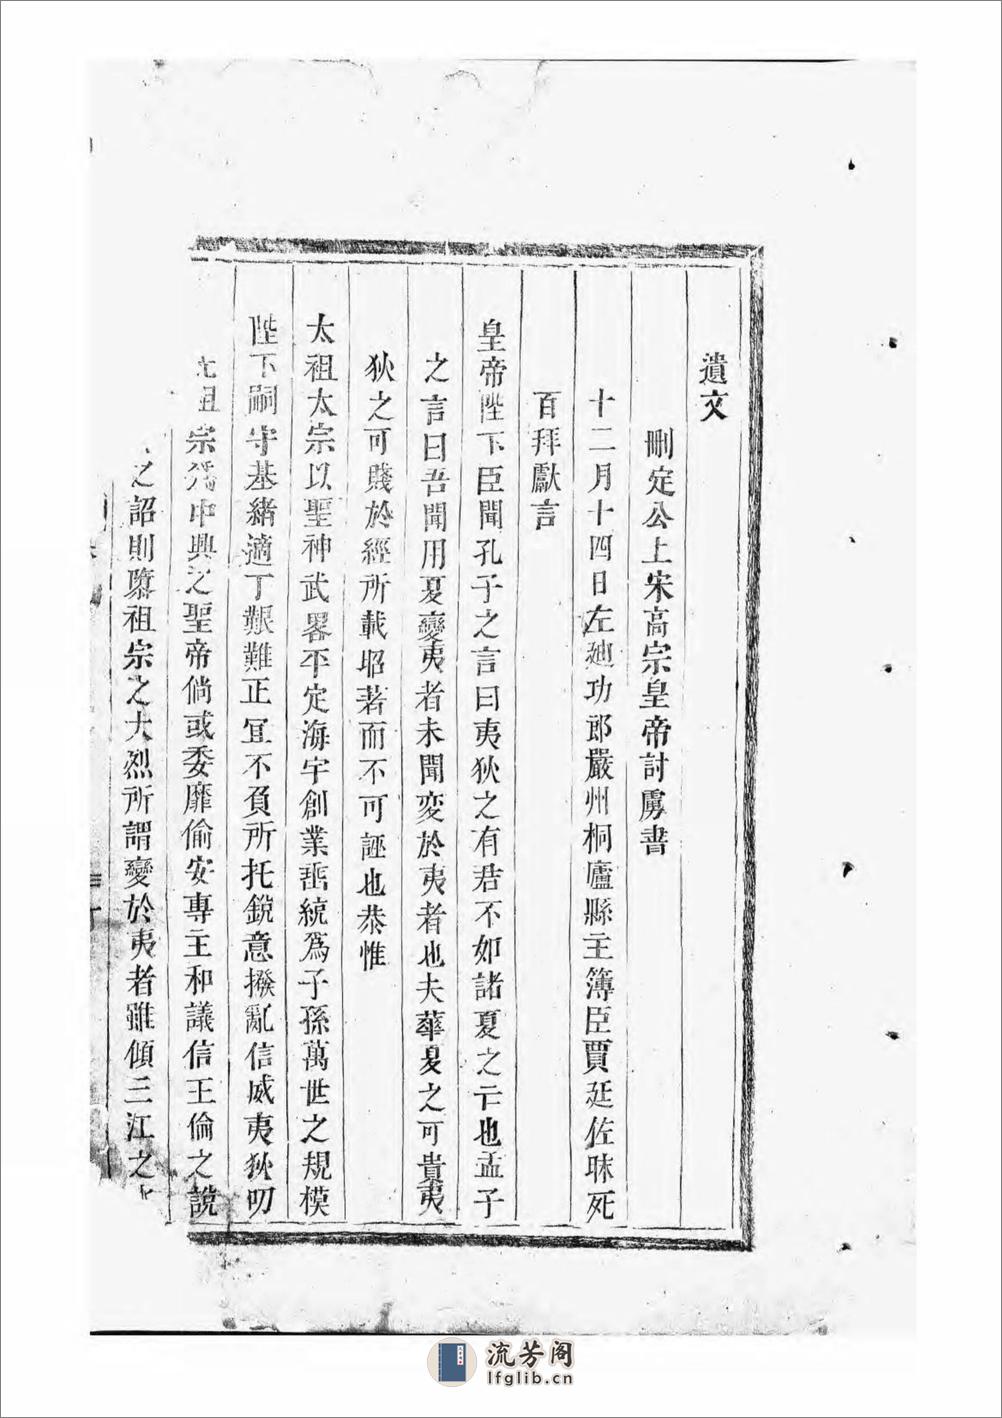 遺文
刪定公上宋高宗皇帝討虜書
十二月十四日左廸功郎嚴州桐廬縣主簿臣賈廷佐昧死
百拜獻言
皇帝陛下臣聞孔子之言曰夷狄之有君不如諸夏之亡也孟子
之言曰吾聞用夏變夷者未聞変於夷者也夫華夏之可貴夷
狄之可賤於經所載昭著而不可誣也恭惟
太祖太宗以聖神武畧平定海宇創業垂統爲子孫萬世之規模
陛下嗣守基緒適丁艱難正宜不負所托銳意撥亂信威夷狄叨
祖宗爲中興之聖帝倘或委靡偷安專主和議信王倫之說
之詔則隳祖宗之大烈所謂變於夷者雖傾三江之
流芳阁
lfglib.cn